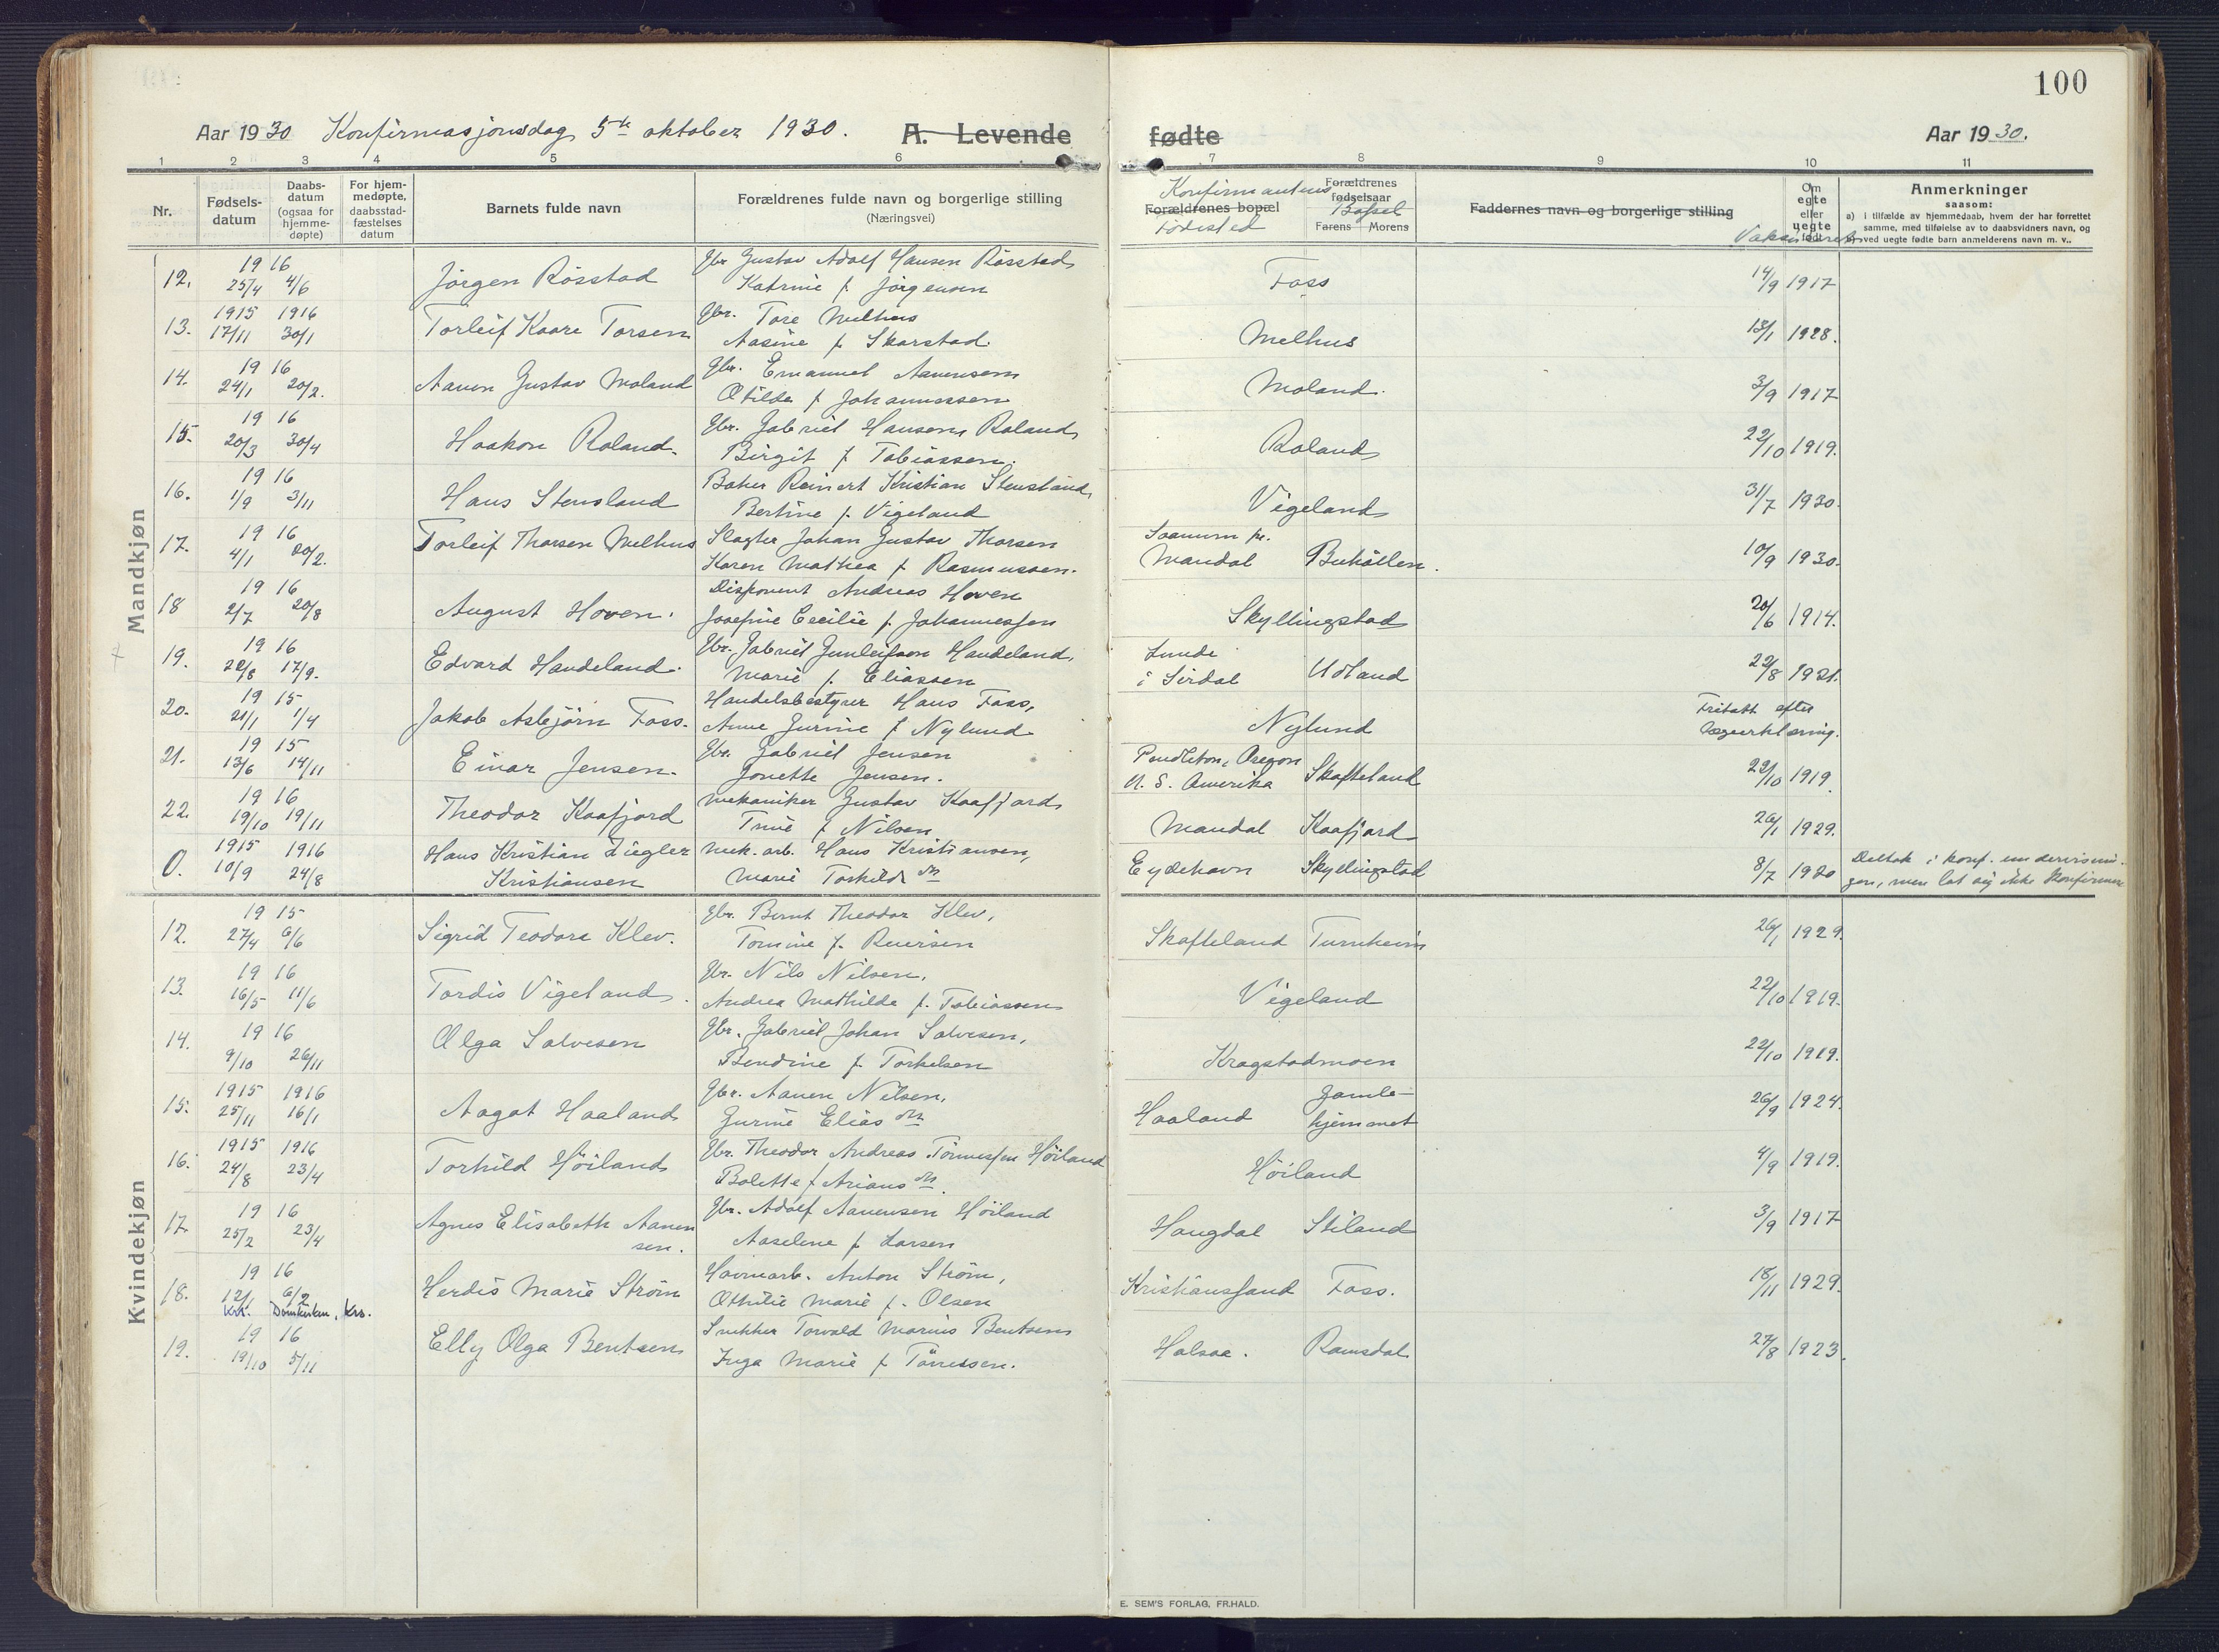 100
Aar 1930 Konfirmasjonsdag 5te oktober 1930. A. Levende fødte Aar 1930.
1 2 3 4 5 6 7 8 9 10 11
Nr.
Fødsels-
datum
Daabs-
datum
(ogsaa for
hjemme-
døpte)
For hjem-
medøpte,
daabsstad-
fæstelses
datum
Barnets fulde navn
Forældrenes fulde navn og borgerlige stilling
(Næringsvei)
Konfirmantens
Forældrenes bopæl
Fødested
Forældrenes
fødselsaar
Bopæl
Farens Morens
Faddernes navn og borgerlige stilling
Om
egte
eller
uegte
født
Anmerkninger
saasom:
a) i tilfælde av hjemmedaab, hvem der har forrettet
samme, med tilføielse av to daabsvidners navn, og
ved uegte fødte barn anmelderens navn m. v..
Mandkjøn
12. 1916 25/4 4/6 Jörgen Rösstad Gbr Gustav Adolf Hansen Rösstad
Katrine f. Jörgensen Foss 14/9 1917
13. 1915 17/11 1916 30/1 Torleif Kaare Torsen Gbr. Tore Melhus
Aasine f. Skarstad Melhus 13/1 1928.
14. 1916 24/1 20/2. Aanen Gustav Moland Gbr. Emanuel Aanensen
Otilde f. Johannessen Moland. 3/9 1917
15. 1916 20/3 30/4 Haakon Roland. Gbr. Gabriel Hansen Roland
Birgit f. Tobiassen. Roland 22/10 1919.
16. 1916 1/9 3/11 Hans Stensland Baker Reinert Kristian Stensland
Bertine f. Vigeland Vigeland 31/7 1930.
17. 1916 4/1 20/2. Torleif Thorsen Melhus Slagter Johan Gustav Thorsen
Karen Mathea f. Rasmussen. Mandal Buhöllen. 10/9 1930.
18 1916 2/7 20/8 August Hoven. Disponent Andreas Hoven
Josefine Cecilie f. Johannessen Skyllingstad 20/6 1914.
19. 1916 22/8 17/9. Edvard Haudeland. Gbr. Gabriel Gunleifsen Haudeland,
Marie f. Eliassen Lunde
i Sirdal Udland 22/8 1921.
20. 1915 21/1 1/4 Jakob Asbjörn Foss. Handelsbestyrer Hans Foss,
Anne Gurine f Nylund Nylund Fritatt efter
lægeerklæring.
21. 1915 13/6 14/11 Einar Jensen. Gbr. Gabriel Jensen
Jonette Jensen. Pendleton, Oregon
U. S. Amerika Skofteland 22/10 1919.
22. 1916 19/10 19/11 Theodor Kaafjord Mekaniker Gustav Kaafjord
Trine f Nilsen Mandal Kaafjord 26/1 1929.
0. 1915 10/9 1916 24/8 Hans Kristian Ziegler
Kristiansen Mek. arb. Hans Kristiansen,
Marie Torkilds dtr Eydehavn Skyllingstad 8/7 1920 Deltok i konf. undervisnin-
gen, men lot sig ikke konfirmere
Kvindekjøn
12. 1915 27/4 6/6 Sigrid Teodora Klev. Gbr. Bernt Theodor Klev,
Tomine f. Reiersen Skofteland Turnheim 26/1 1929.
13. 1916 16/5 11/6 Tordis Vigeland. Gbr. Nils Nilsen,
Andrea Mathilde f. Tobiassen Vigeland 22/10 1919.
14. 1916 9/10 26/11 Olga Salvesen Gbr. Gabriel Johan Salvesen,
Bendine f. Torkelsen Kragstadmoen 22/10 1919.
15. 1915 25/11 1916 16/1 Aagot Haaland Gbr. Aanen Nilsen,
Gurine Elias dtr Haaland Gamle-
hjemmet 26/9 1924.
16. 1915 24/8 1916 23/4 Torhild Höiland Gbr. Theodor Andreas Tönnessen Höiland
Bolette f Arians dtr. Höiland 4/9 1919.
17. 1916 25/2 23/4 Agnes Elisabeth Aanen
sen. Gbr. Adolf Aanensen Höiland
Aaselene f. Larsen Haugdal Stiland 3/9 1917
18. 1916 12/1 6/2 Krs. Domkirken, Krs. Herdis Marie Ström Havnearb. Anton Ström,
Othilie Marie f. Olsen Kristianssand Foss. 18/11 1929.
19. 1916 19/10 5/11 Elly Olga Bentsen Snekker Torvald Marius Bentsen
Inga Marie f Tönnessen. Halsaa. Ramsdal 27/8 1923.
E. SEM'S FORLAG, FR.HALD.